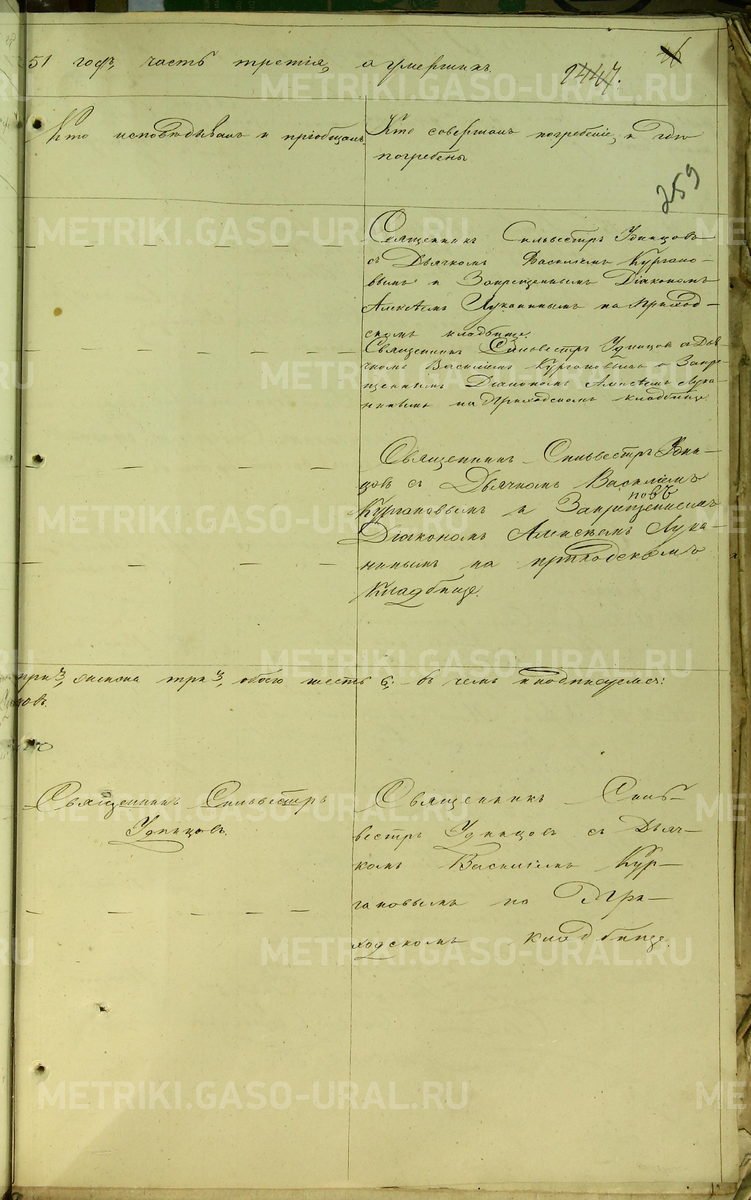 51 годъ, часть третія, о умершихъ.
1447.
Кто исповѣдывалъ и пріобщалъ
Кто совершалъ погребеніе, и гдѣ
погребены
259
Священникъ Сильвестръ Удинцовъ
съ Дьячкомъ Василіемъ Кургано-
вымъ и Запрещеннымъ Діакономъ
Алексѣемъ Луканинымъ на Приход-
скомъ кладбищѣ.
Священникъ Сильвестръ Удинцов съ Дья
чкомъ Василіемъ Кургановымъ и Запре
щеннымъ Діакономъ Алексѣемъ Лука-
нинымъ на Приходскомъ кладбищѣ.
Священникъ Сильвестръ Удин-
цовъ съ Дьячкомъ Василіемъ
Кургановымъ и Запрещеннымъ
Діакономъ Алексѣемъ Лука-
нинымъ на приходскомъ
Кладбищѣ.
три 3, женска три 3, обоего шесть 6; въ чемъ и подписуемся:
Священникъ Сильвестръ
Удинцовъ.
Священникъ Силь-
вестръ Удинцовъ съ Дьяч-
комъ Василіемъ Кур-
гановымъ на При-
ходскомъ кладбищѣ.
METRIKI.GASO-URAL.RU